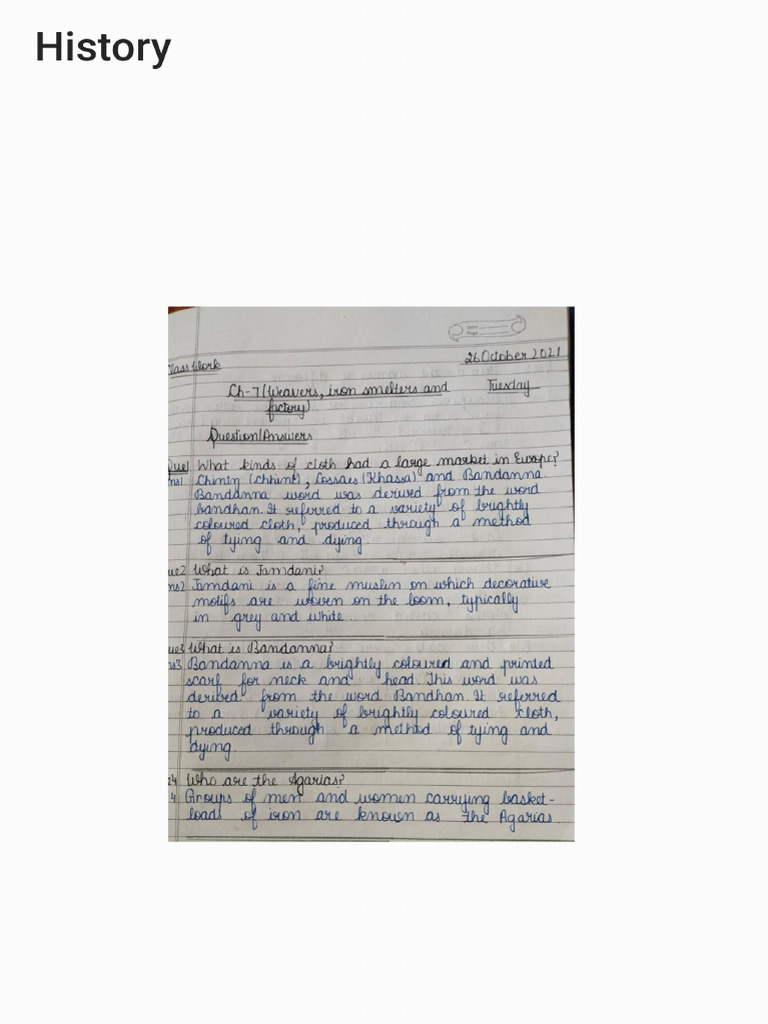 History
Date
Page
Class Work
26 October 2021
Ch-7 (Weavers, iron smelters and
Tuesday
factory)
Question/Answers
Que1 What kinds of cloth had a large market in Europe?
ns1 Chintz (chhint), Cossaes (Khassa) and Bandanna.
Bandanna word was derived from the word
bandhan. It referred to a variety of brightly
coloured cloth, produced through a method
of tying and dying.
ue2 What is Jamdani?
ns2 Jamdani is a fine muslin on which decorative
motifs are woven on the loom, typically
in grey and white.
ue3 What is Bandanna?
ns3 Bandanna is a brightly coloured and printed
scarf for neck and head. This word was
derived from the word Bandhan. It referred
to a variety of brightly coloured cloth,
produced through a method of tying and
dying.
e4 Who are the Agarias?
4 Groups of men and women carrying basket-
loads of iron are known as the Agarias.